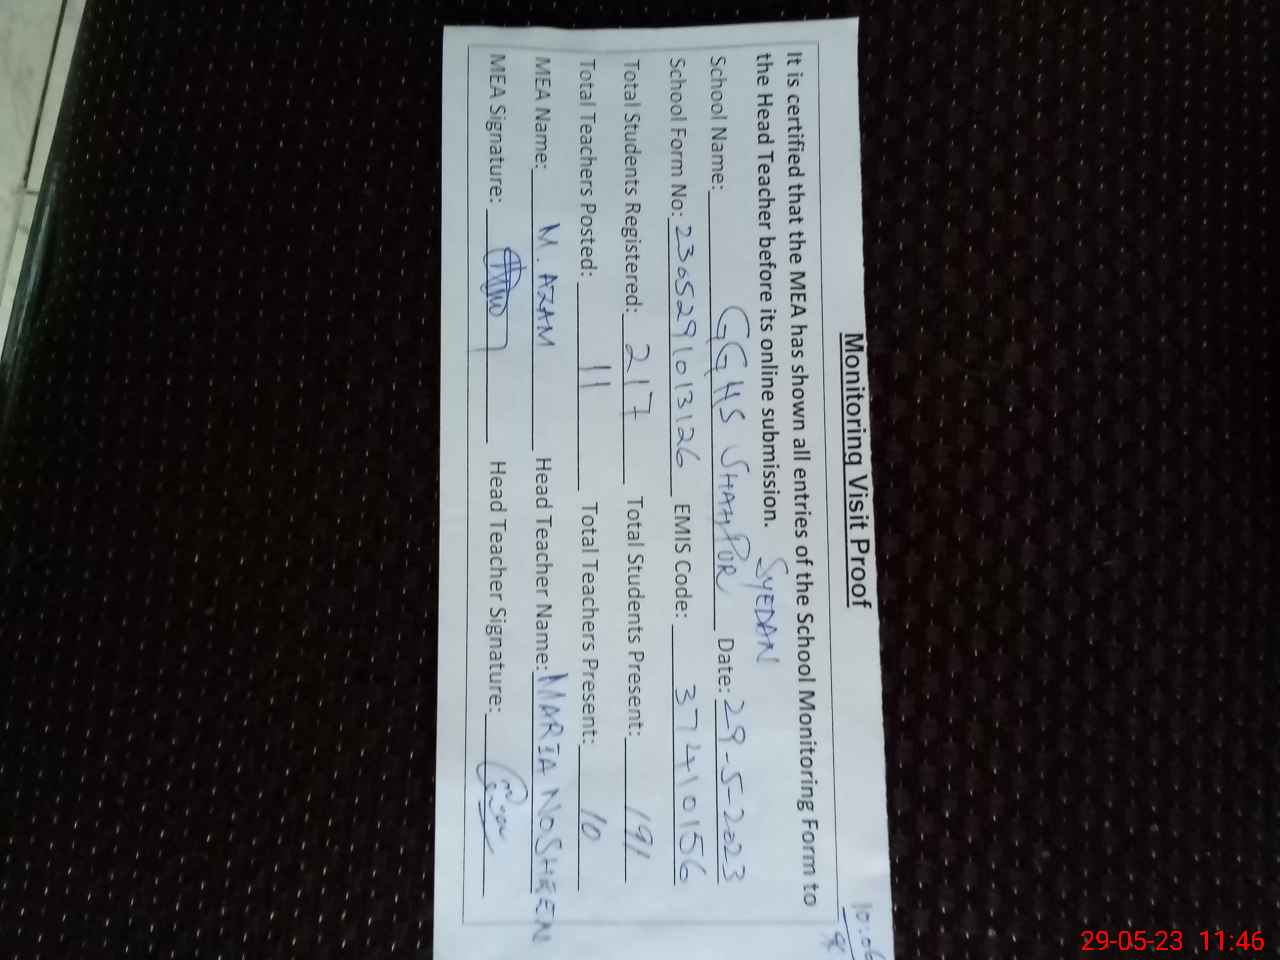 10:06
Monitoring Visit Proof
It is certified that the MEA has shown all entries of the School Monitoring Form to
the Head Teacher before its online submission.
SYEDAN
School Name: GGHS SHAHPUR Date: 29-5-2023
School Form No: 2305291013126 EMIS Code: 37410156
Total Students Registered: 217 Total Students Present: 191
Total Teachers Posted: 11 Total Teachers Present: 10
MEA Name: M. AZAM Head Teacher Name: MARIA NOSHEEN
MEA Signature: Head Teacher Signature:
29-05-23 11:46